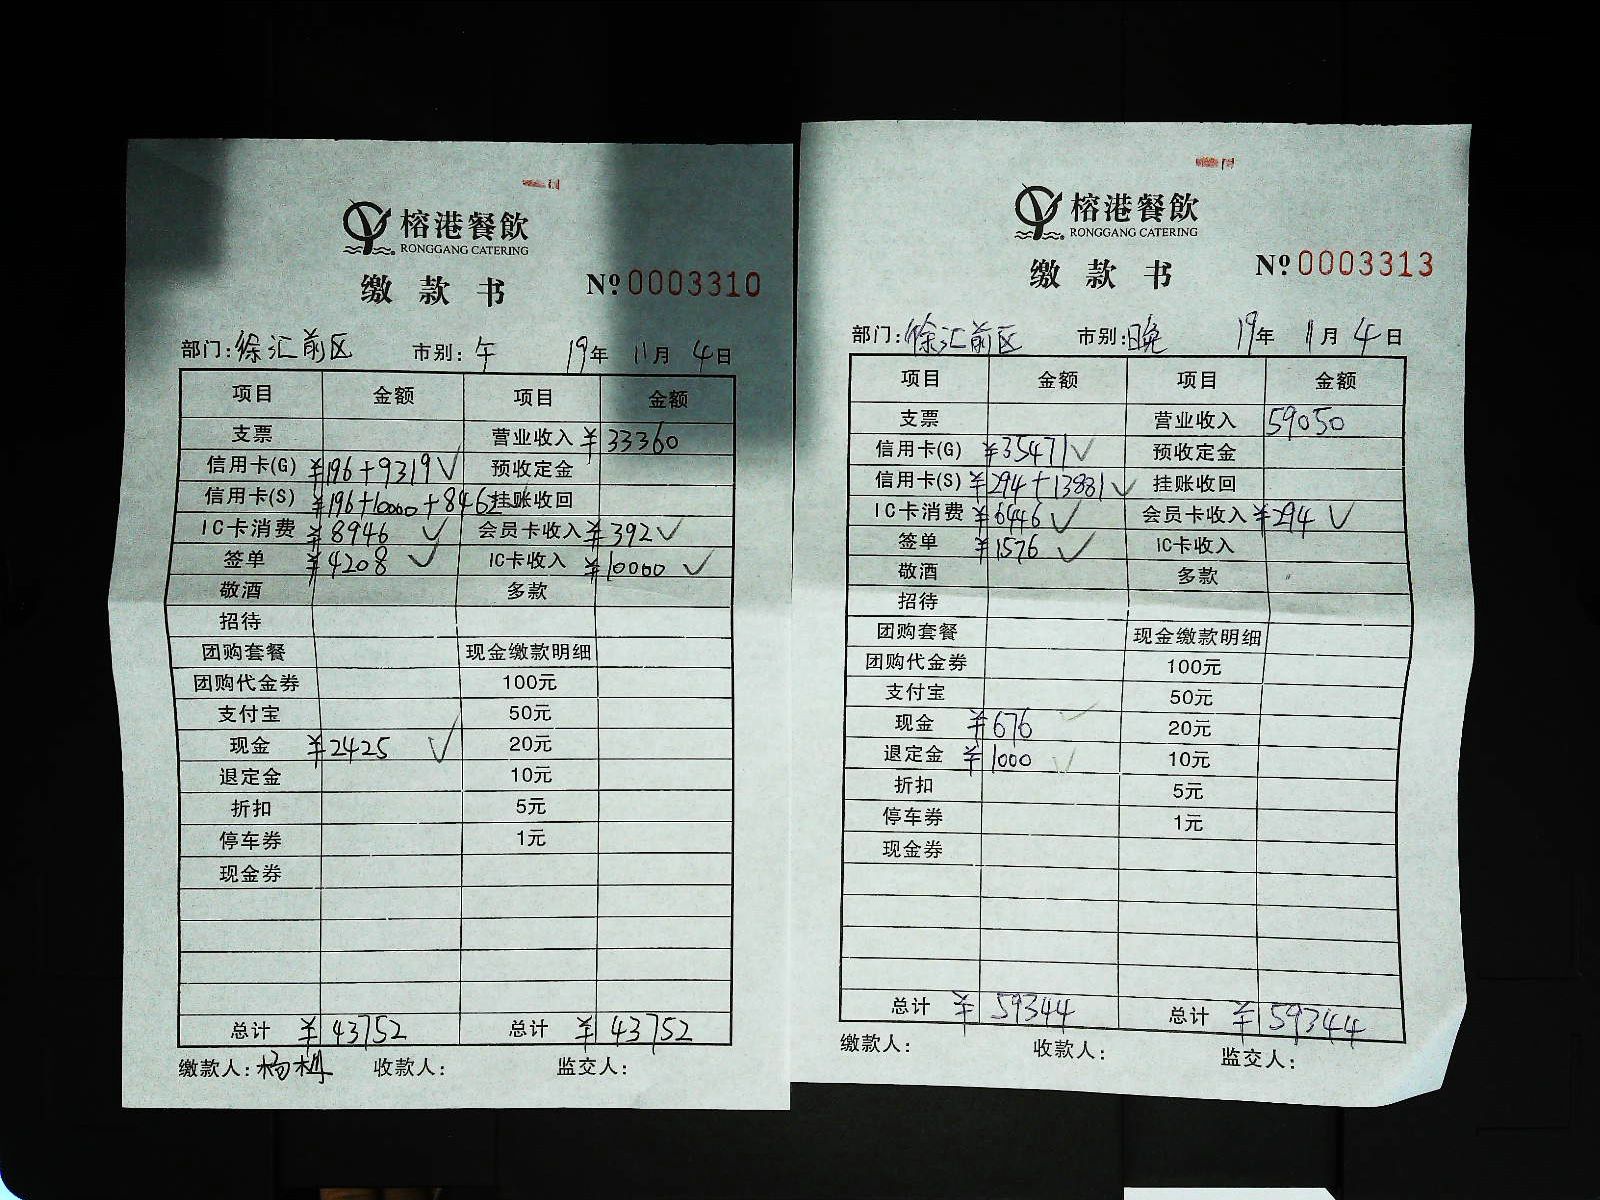 榕港餐飲
RONGGANG CATERING
缴款书 Nº 0003310
部门:徐汇前区 市别:午 19年 11月 4日
项目 金额 项目 金额
支票 营业收入 ¥33360
信用卡(G) ¥196+9319✓ 预收定金
信用卡(S) ¥196+10000+8462 挂账收回
IC卡消费 ¥8946 ✓ 会员卡收入 ¥392✓
签单 ¥4208 ✓ IC卡收入 ¥10000 ✓
敬酒 多款
招待
团购套餐 现金缴款明细
团购代金券 100元
支付宝 50元
现金 ¥2425 ✓ 20元
退定金 10元
折扣 5元
停车券 1元
现金券
总计 ¥43752 总计 ¥43752
缴款人: 收款人: 监交人:
榕港餐飲
RONGGANG CATERING
缴款书 Nº 0003313
部门:徐汇前区 市别:晚 19年 11月 4日
项目 金额 项目 金额
支票 营业收入 59050
信用卡(G) ¥35471✓ 预收定金
信用卡(S) ¥294+13881✓ 挂账收回
IC卡消费 ¥6446 ✓ 会员卡收入 ¥294 ✓
签单 ¥1576 ✓ IC卡收入
敬酒 多款
招待
团购套餐 现金缴款明细
团购代金券 100元
支付宝 50元
现金 ¥676 ✓ 20元
退定金 ¥1000 ✓ 10元
折扣 5元
停车券 1元
现金券
总计 ¥59344 总计 ¥59344
缴款人: 收款人: 监交人: